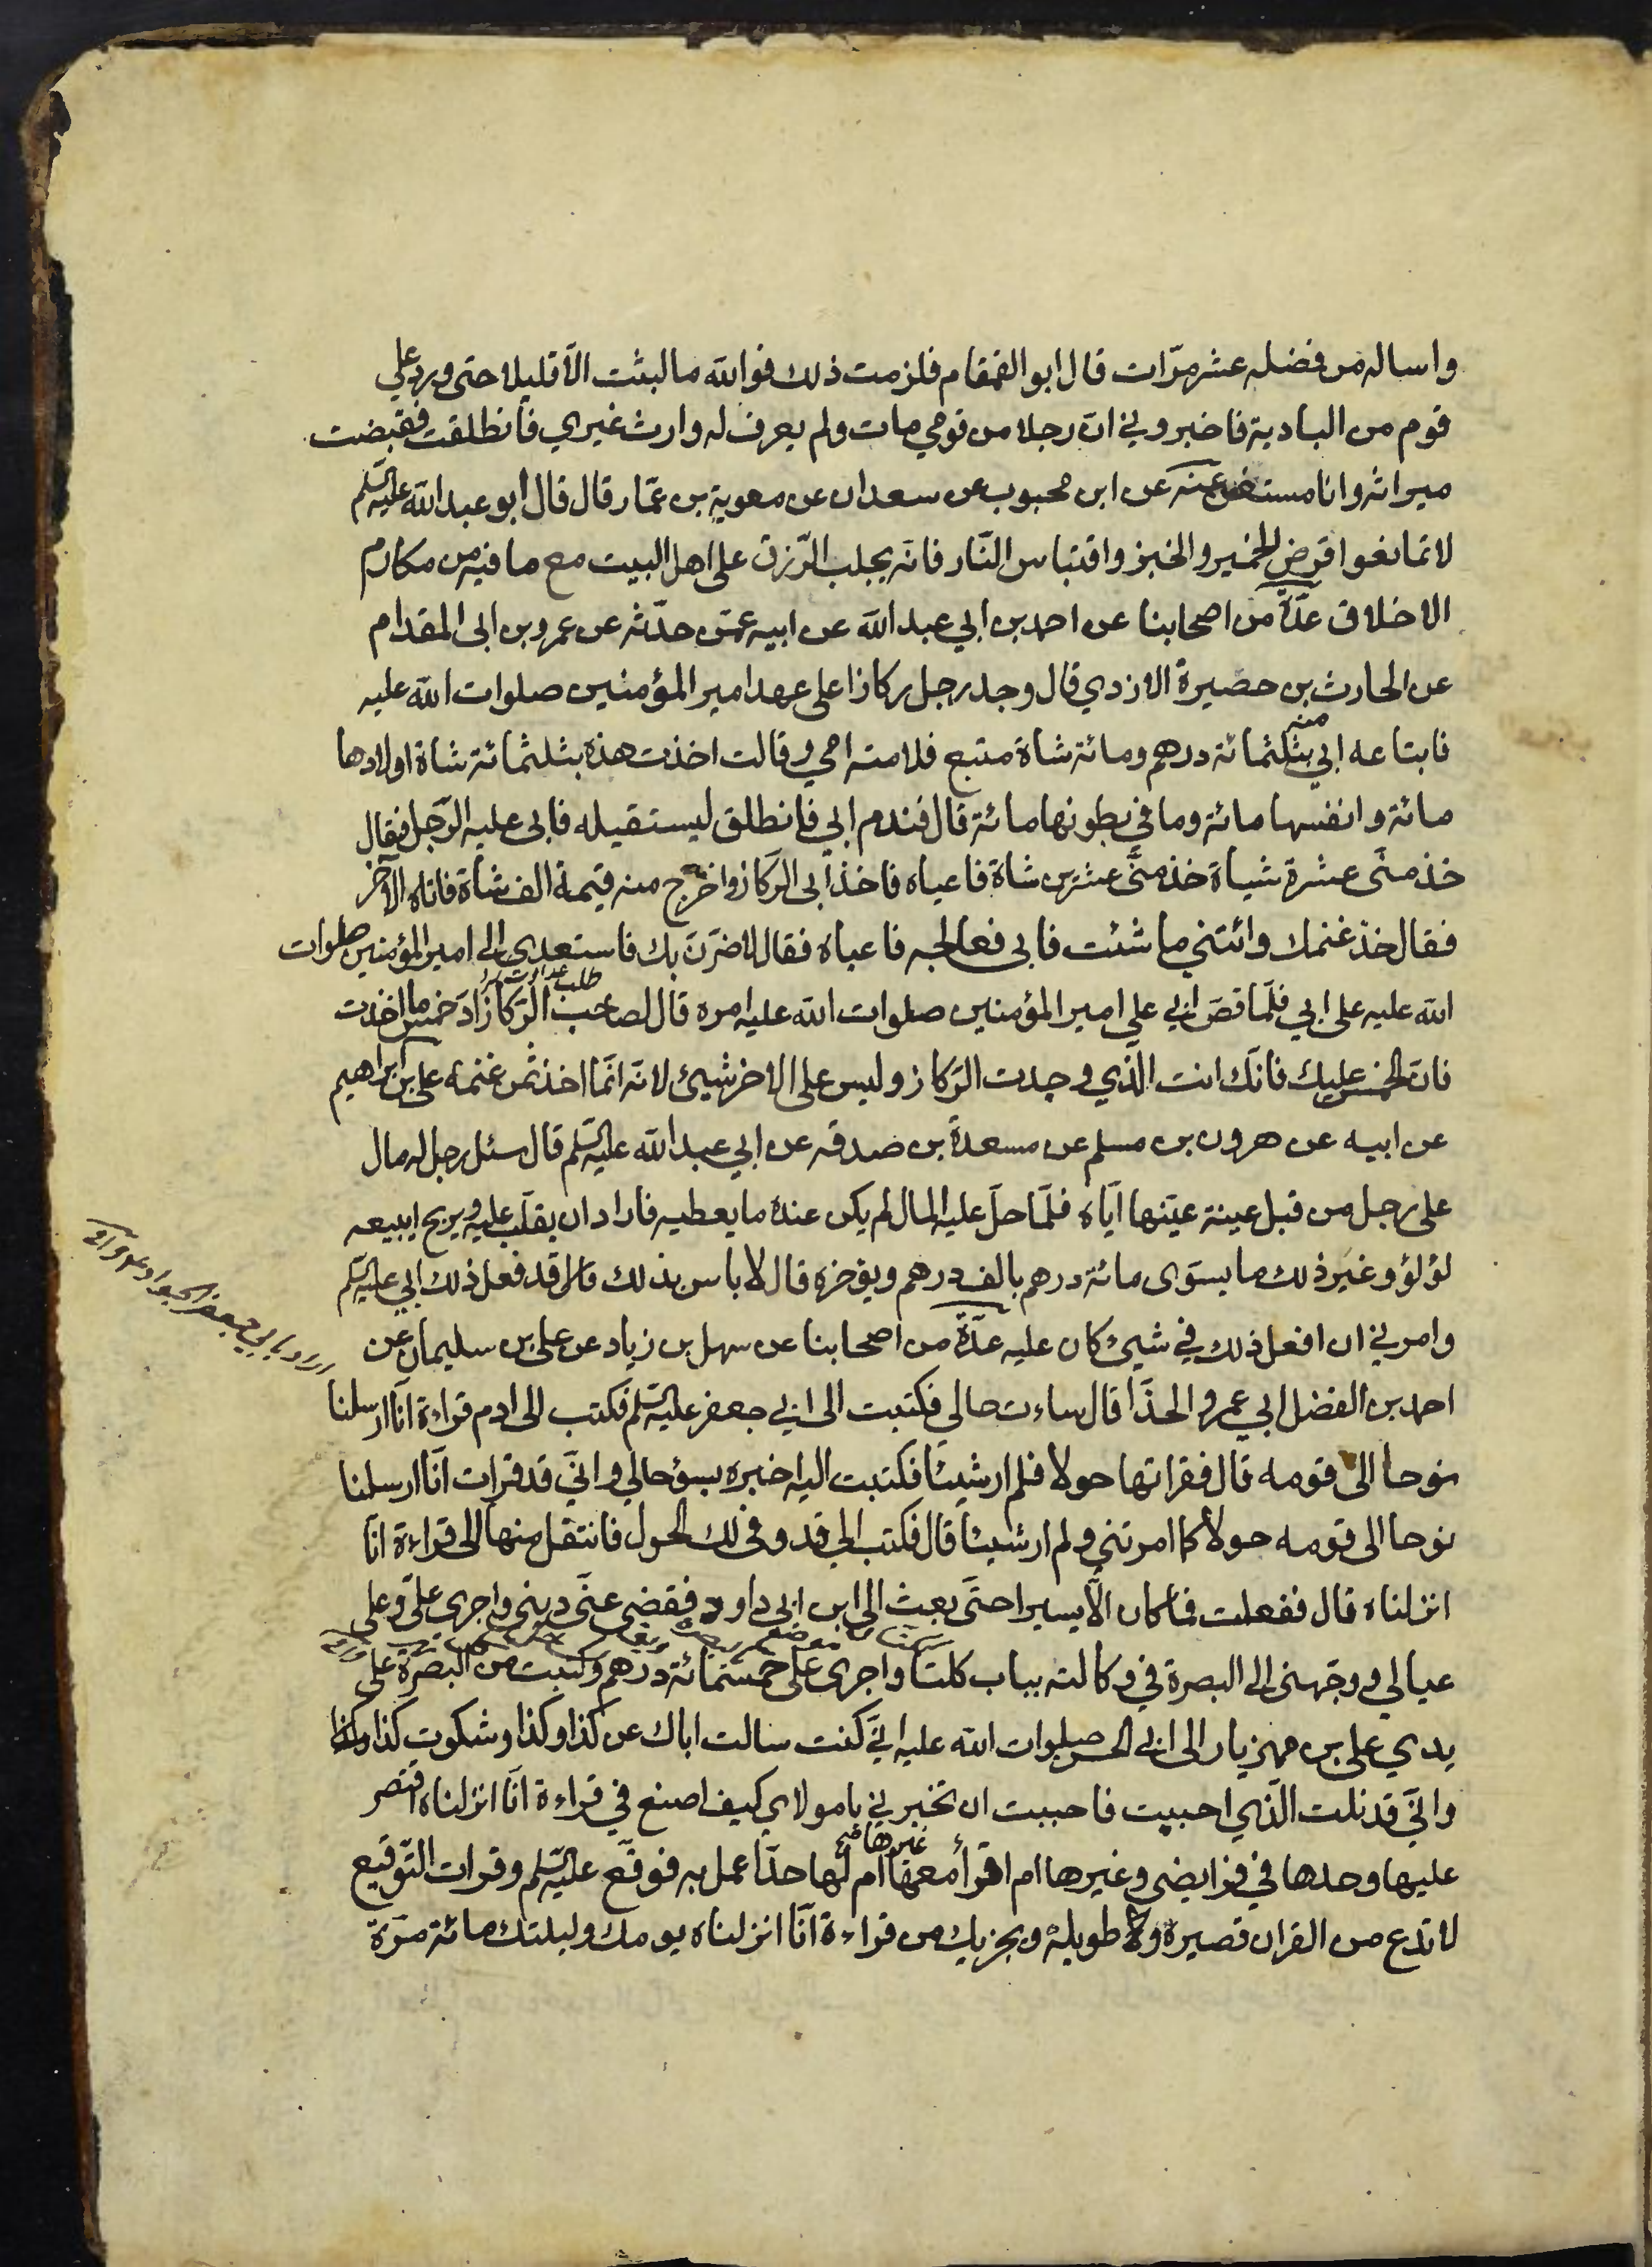 واساله من فضله عشر مرّات قال ابو القمقام فلزمت ذلك فوالله ما لبثت الّا قليلا حتى ورد علي
قوم من البادية فاخبروني انّ رجلا من قومي مات ولم يعرف له وارث غيري فانطلقت فقبضت
ميراثه وانا مستغن عنه عن ابن محبوب عن سعدان عن معوية بن عمّار قال قال ابو عبد الله عليه السّلم
لا تمانعوا قرض الخمير والخبز واقتباس النّار فانّه يجلب الرّزق على اهل البيت مع ما فيه من مكارم
الاخلاق عدّة من اصحابنا عن احمد بن ابي عبد الله عن ابيه عمّن حدّثه عن عمرو بن ابي المقدام
عن الحارث بن حصيرة الازدي قال وجد رجل ركازا على عهد امير المؤمنين صلوات الله عليه
فابتاعه ابي منه بثلثمائة درهم ومائة شاة متبع فلامته امي وقالت اخذت هذه بثلثمائة شاة اولادها
مائة وانفسها مائة وما في بطونها مائة قال فندم ابي فانطلق ليستقيله فابى عليه الرّجل فقال
خذ منّي عشرة شياة خذ منّي عشرين شاة فاعياه فاخذ ابي الركاز واخرج منه قيمة الف شاة فاتاه الآخر
فقال خذ غنمك وائتني ما شئت فابى فعالجه فاعياه فقال لاضرّنّ بك فاستعدى الى امير المؤمنين صلوات
الله عليه على ابي فلمّا قصّ ابي على امير المؤمنين صلوات الله عليه امره قال لصاحب الركاز ادّ خمس ما اخذت
فانّ الخمس عليك فانّك انت الّذي وجدت الركاز وليس على الاخر شيئ لانّه انّما اخذ ثمن غنمه علي بن ابراهيم
عن ابيه عن هرون بن مسلم عن مسعدة بن صدقه عن ابي عبد الله عليه السّلم قال سئل رجل له مال
على رجل من قبل عينة عيّنها ايّاه فلمّا حلّ عليه المال لم يكن عنده ما يعطيه فاراد ان يقلّب عليه ويربح ايبيعه
لؤلؤ وغير ذلك ما يسوى مائة درهم بالف درهم ويؤخره قال لا باس بذلك قال قد فعل ذلك ابي عليه السّلم
وامرني ان افعل ذلك في شيئ كان عليه عدّة من اصحابنا عن سهل بن زياد عن علي بن سليمان عن
احمد بن الفضل ابي عمرو الحذّا قال ساءت حالي فكتبت الى ابي جعفر عليه السّلم فكتب الى ادم قراءة انّا ارسلنا
نوحا الى قومه قال فقراتها حولا فلم ار شيئا فكتبت اليه اخبره بسؤ حالي وانّي قد قرات انّا ارسلنا
نوحا الى قومه حولا كما امرتني ولم ار شيئا قال فكتب الي قد وفى لك الحول فانتقل منها الى قراءة انّا
انزلناه قال ففعلت فما كان الّا يسيرا حتّى بعث الى ابن ابي داود فقضى عنّي ديني واجرى عليّ وعلى
عيالي ووجّهني الى البصرة في وكالته بباب كلتا واجرى عليّ خمسمائة درهم وكتبت من البصرة على
يدي علي بن مهزيار الى ابي الحسن صلوات الله عليه انّي كنت سالت اباك عن كذا وكذا وشكوت كذا وكذا
وانّي قد نلت الّذي احببت فاحببت ان تخبرني يا مولاي كيف اصنع في قراءة انّا انزلناه اقتصر
عليها وحدها في فرايضي وغيرها ام اقرأ معها غيرها ام لها حدّا عمل به فوقّع عليه السّلم وقرات التّوقيع
لا تدع من القران قصيره ولا طويلة ويجزيك من قراءة انّا انزلناه يومك وليلتك مائة مرّة